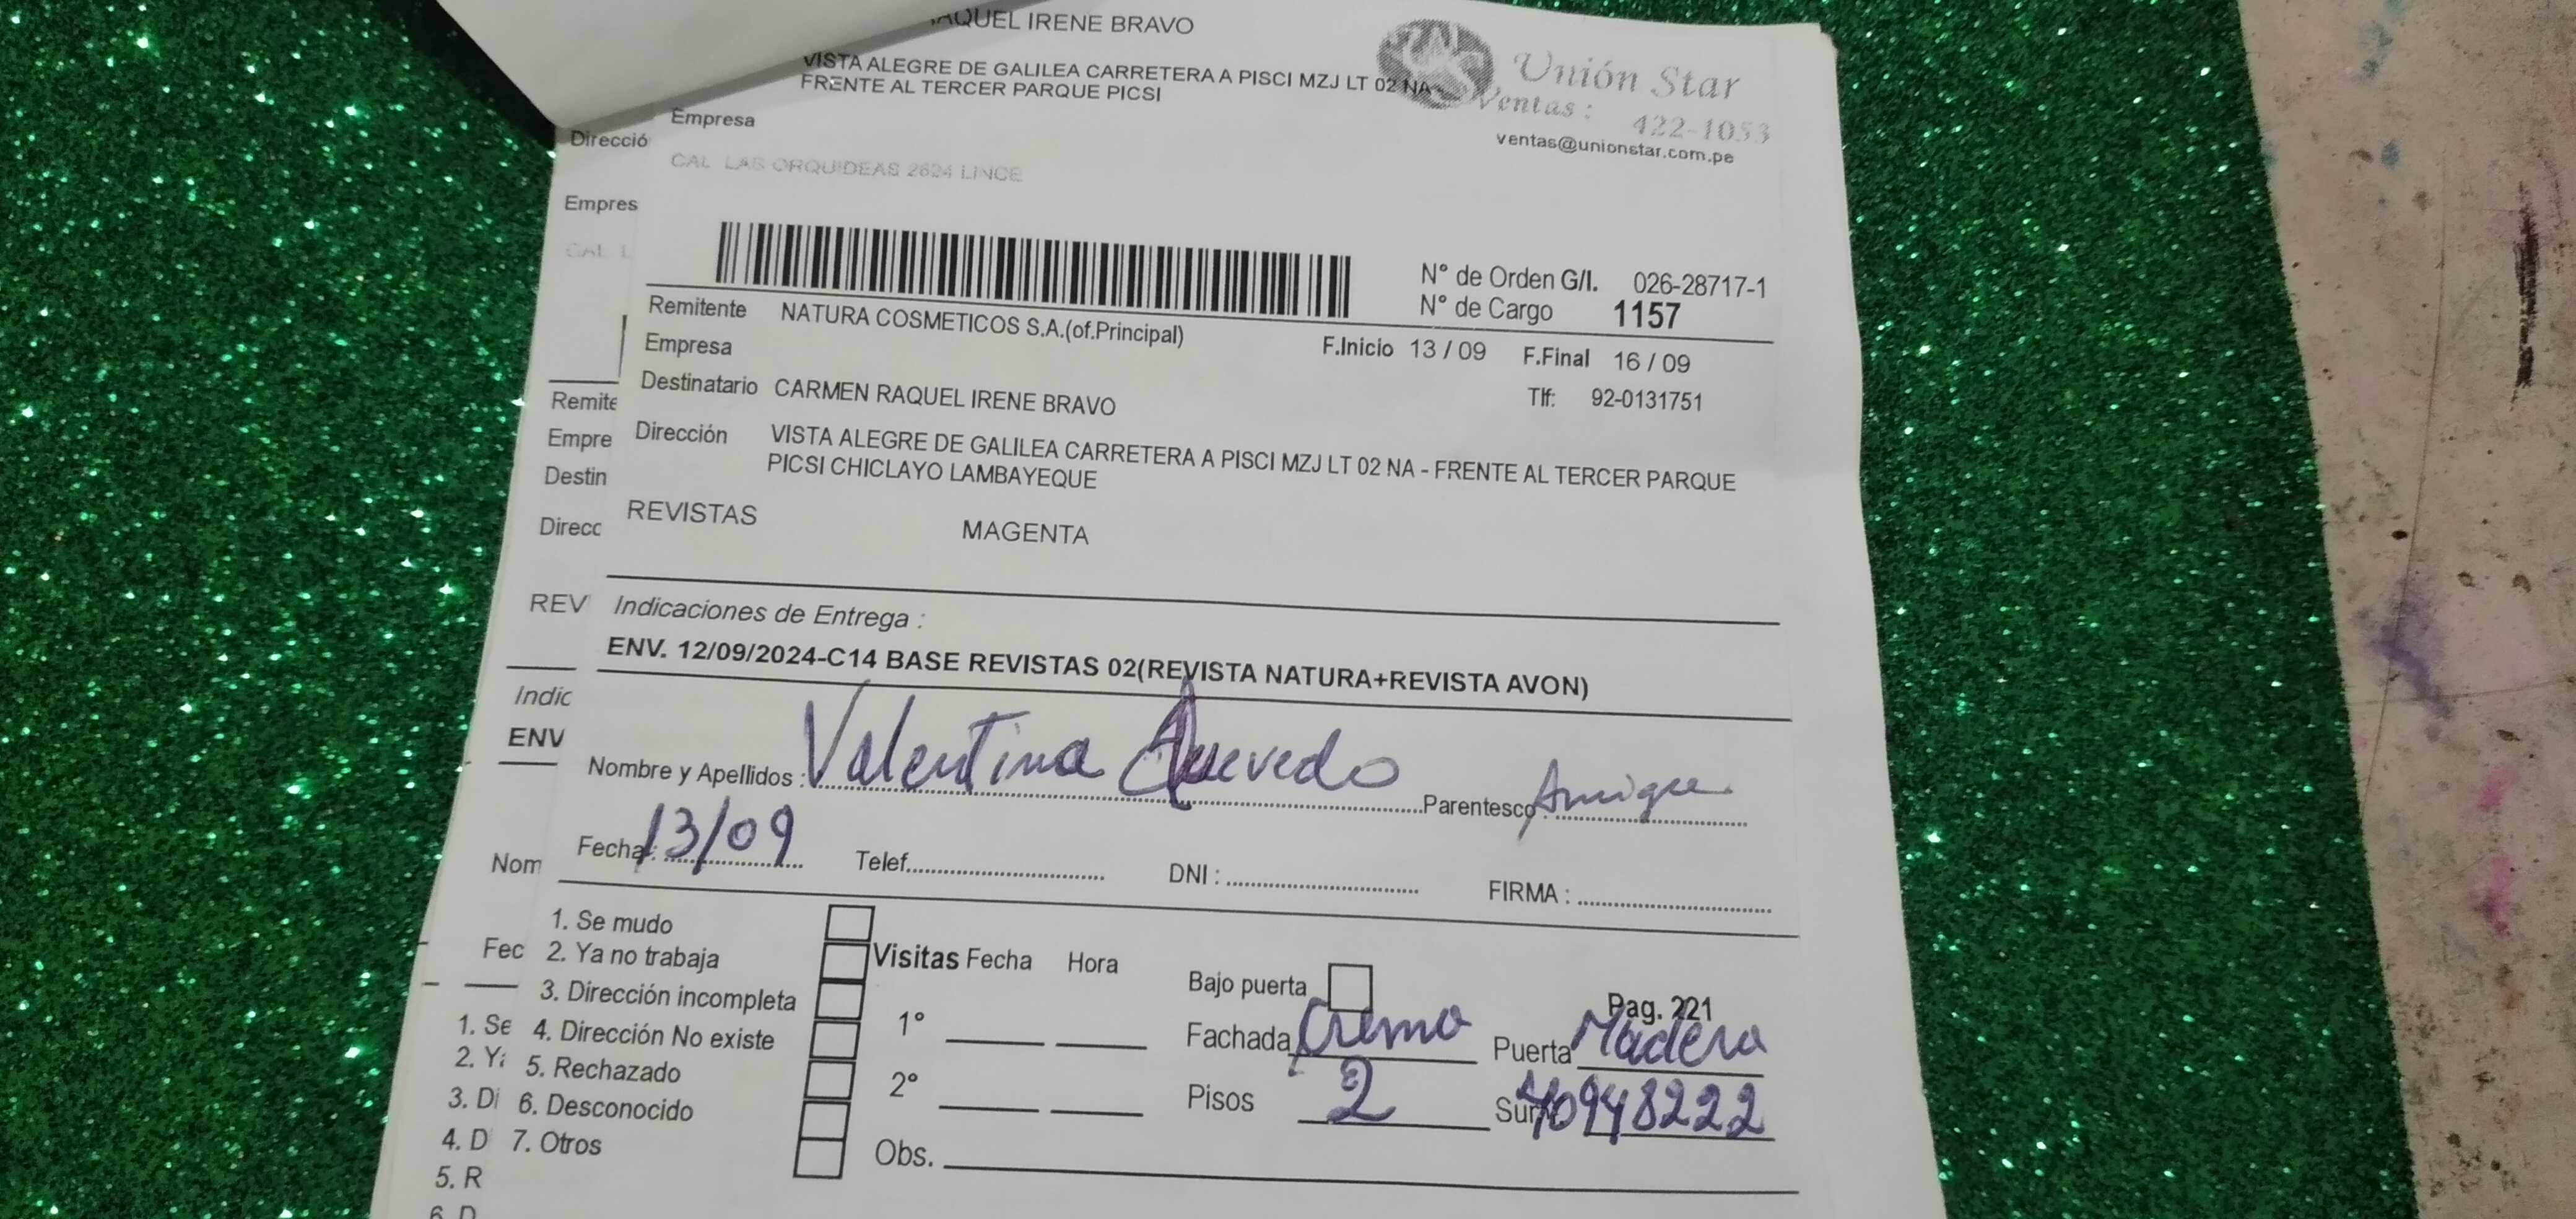 RAQUEL IRENE BRAVO
VISTA ALEGRE DE GALILEA CARRETERA A PISCI MZJ LT 02 NA -
FRENTE AL TERCER PARQUE PICSI
Unión Star
Ventas :
422-1053
ventas@unionstar.com.pe
Empresa
Direcció
CAL LAS ORQUIDEAS 2624 LINCE
Empres
CAL L
N° de Orden G/I. 026-28717-1
N° de Cargo 1157
Remitente NATURA COSMETICOS S.A.(of.Principal)
F.Inicio 13 / 09 F.Final 16 / 09
Empresa
Tlf: 92-0131751
Destinatario CARMEN RAQUEL IRENE BRAVO
Remite
Dirección VISTA ALEGRE DE GALILEA CARRETERA A PISCI MZJ LT 02 NA - FRENTE AL TERCER PARQUE
PICSI CHICLAYO LAMBAYEQUE
Empre
Destin
REVISTAS MAGENTA
Direcc
Indicaciones de Entrega :
REV
ENV. 12/09/2024-C14 BASE REVISTAS 02(REVISTA NATURA+REVISTA AVON)
Indic
ENV
Nombre y Apellidos : Valentina Quevedo Parentesco : Amiga
Fecha : 13/09 Telef. DNI : FIRMA :
Nom
1. Se mudo
2. Ya no trabaja
Fec
3. Dirección incompleta
4. Dirección No existe
5. Rechazado
6. Desconocido
7. Otros
Visitas Fecha Hora
1°
2°
Obs.
Bajo puerta
Pag. 221
Fachada Crema Puerta Madera
Pisos 2 Sum 40948222
1. Se
2. Ya
3. Di
4. D
5. R
6. D